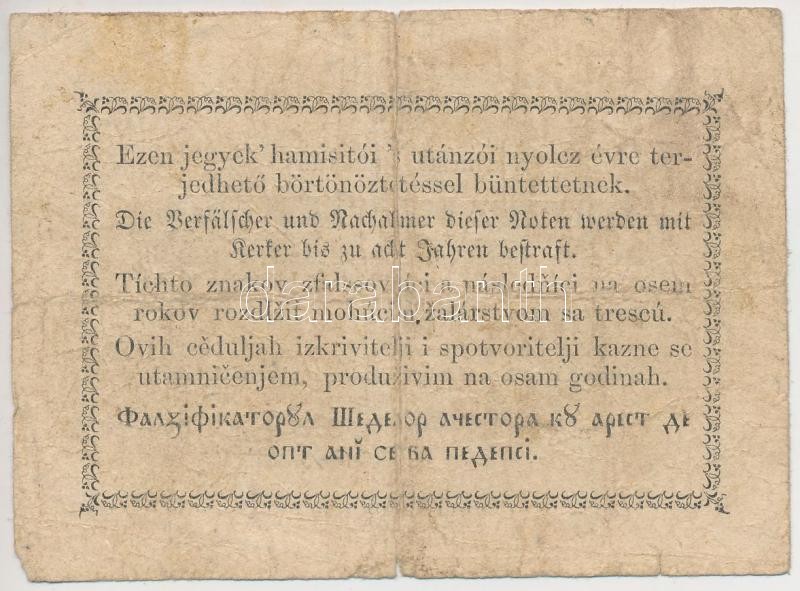 Ezen jegyek' hamisitói 's utánzói nyolcz évre ter-
jedhető börtönöztetéssel büntettetnek.
Die Verfälscher und Nachahmer dieser Noten werden mit
Kerker bis zu acht Jahren bestraft.
Tíchto znakov zfalssovníci a následníci na osem
rokov rozdĺžiť mohúcim žalárstvom sa trescú.
Ovih cěduljah izkrivitelji i spotvoritelji kazne se
utamničenjem, produživim na osam godinah.
Фалꙃіфікаторꙋл Шеделор ачестора кꙋ арест де
опт анĭ се ва педепсі.
darabanth